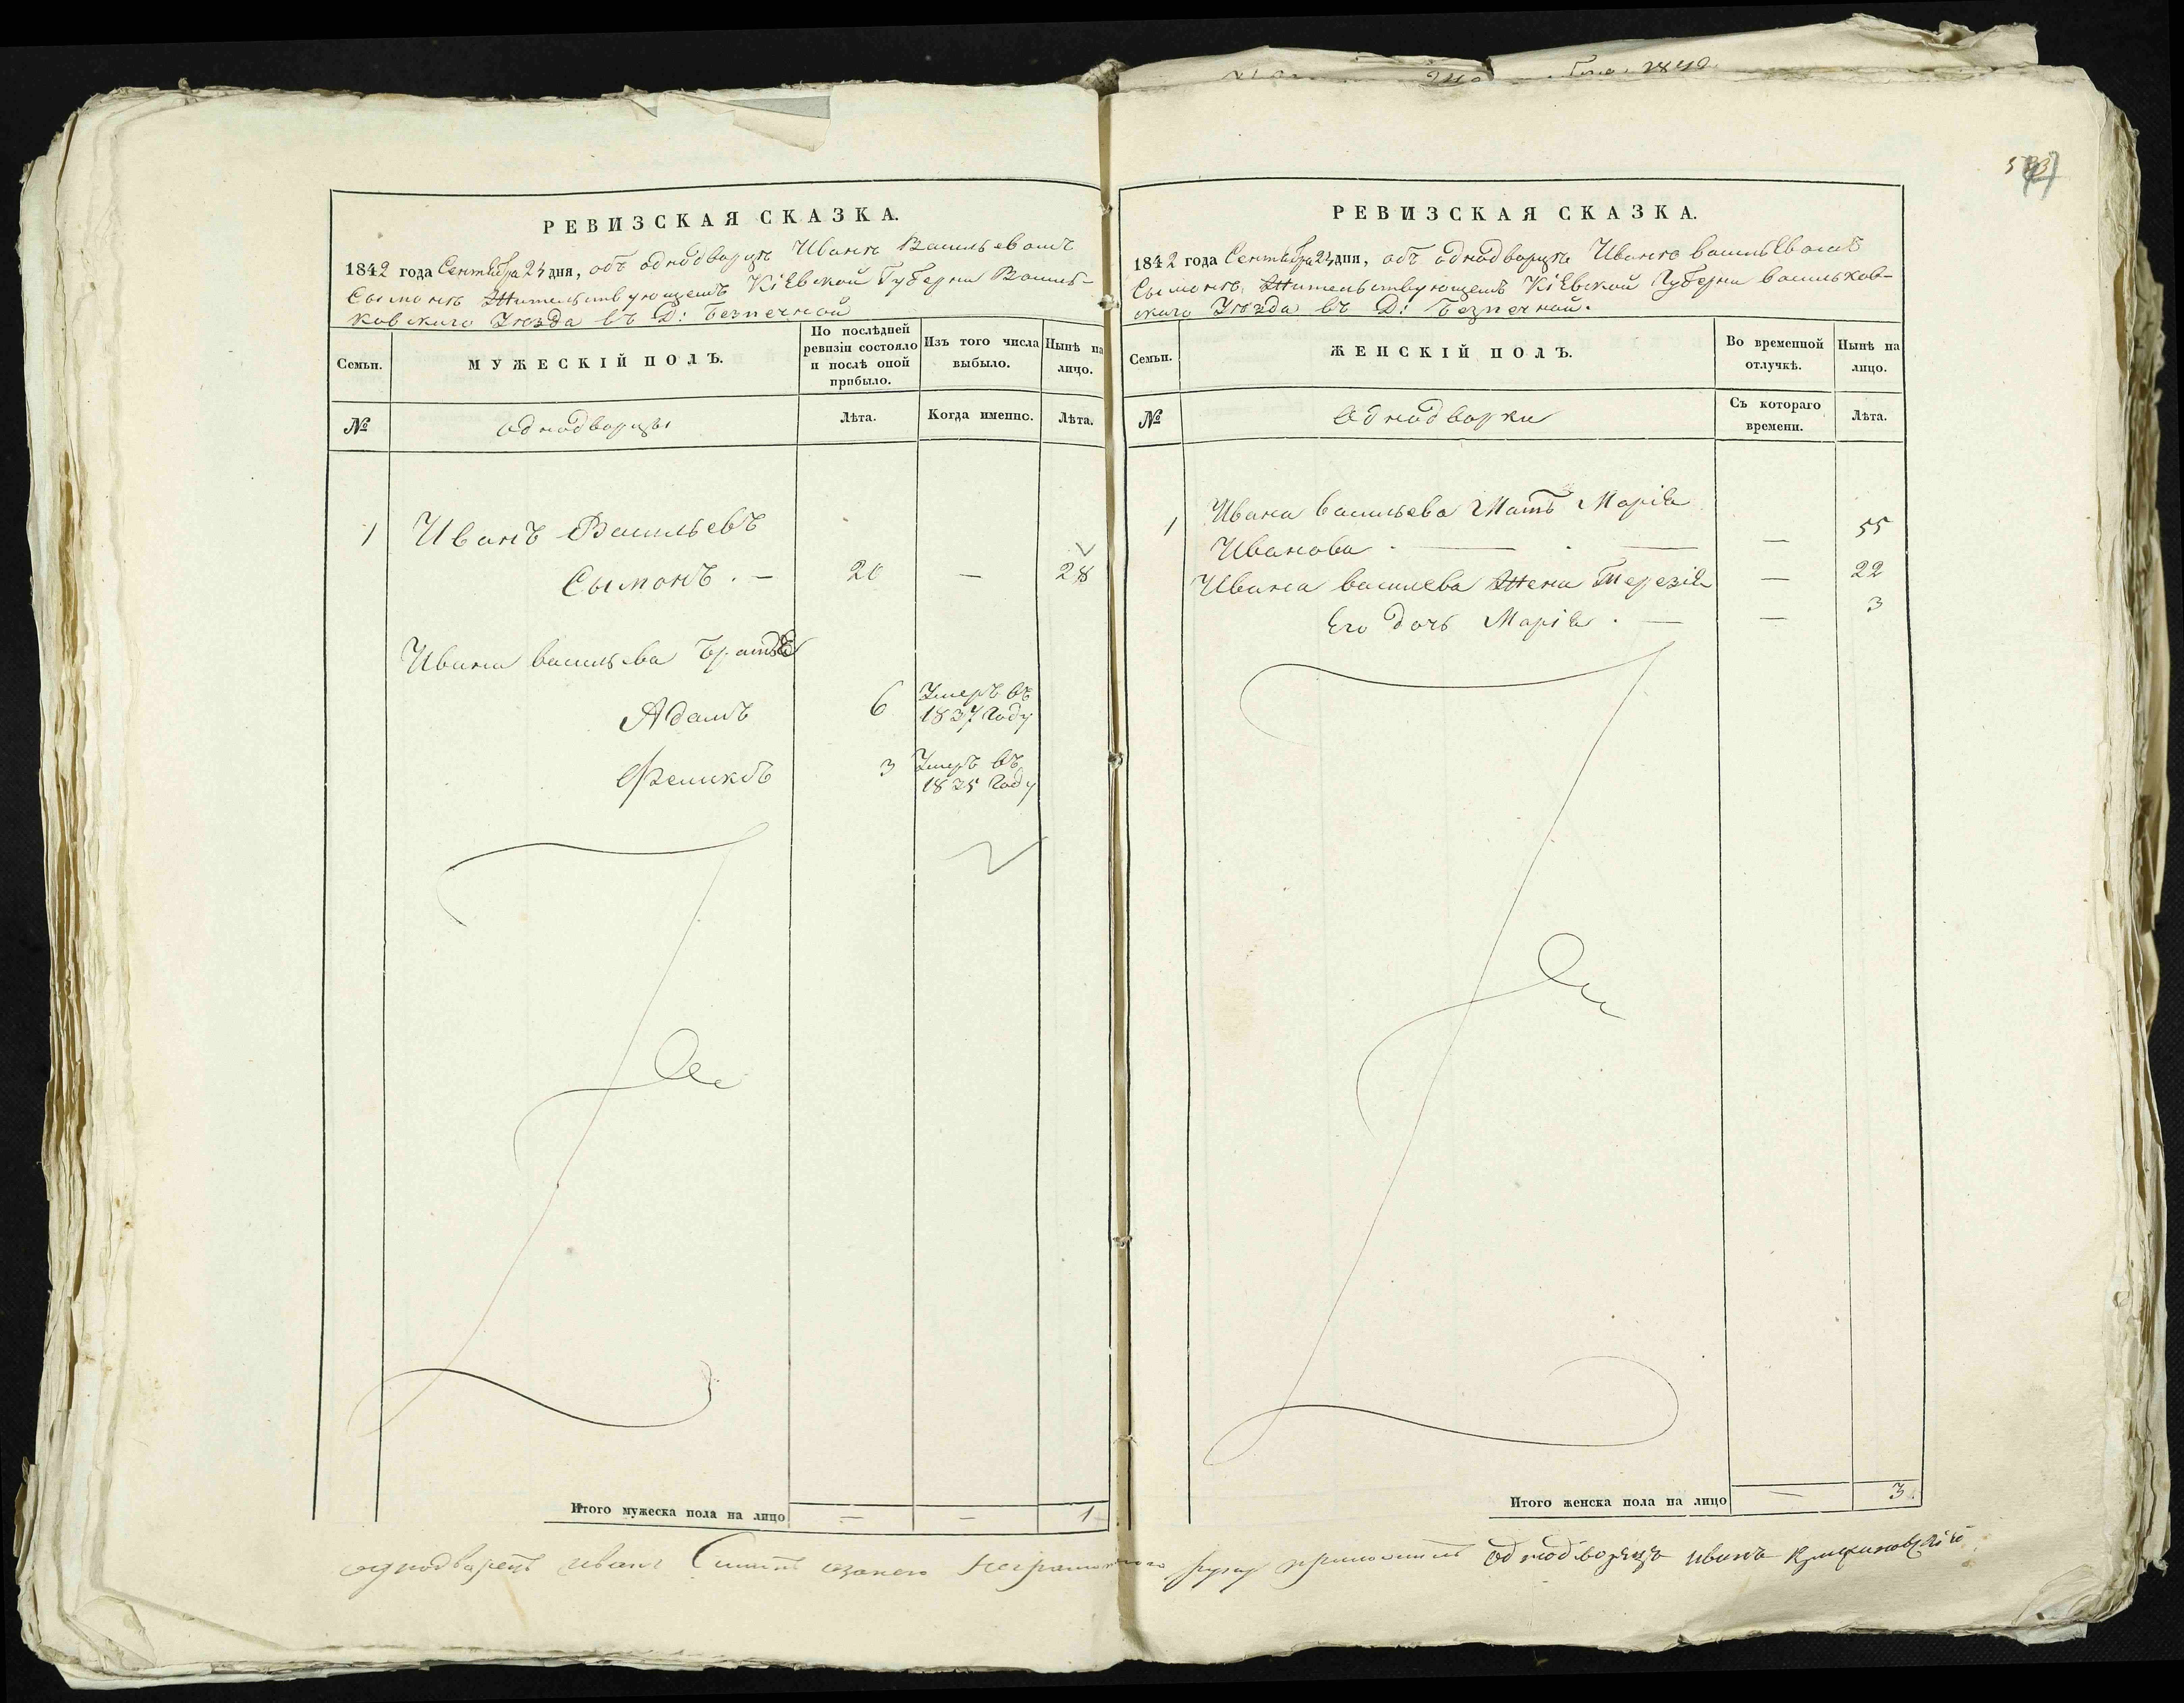 РЕВИЗСКАЯ СКАЗКА.
1842 года Сентября 24 дня, объ однодворцѣ Иванѣ Васильевомъ
Сымонѣ Жительствующемъ Кіевской Губерни Василь-
ковскаго Уѣзда въ Д: Безпечной
Семьи.
МУЖЕСКІЙ ПОЛЪ.
По послѣдней ревизіи состояло и послѣ оной прибыло.
Изъ того числа выбыло.
Нынѣ на лицо.
№
Однодворцы
Лѣта.
Когда именно.
Лѣта.
1 Иванъ Васильевъ
Сымонъ. — 20 — 28
Ивана Васильева Братья
Адамъ 6 Умеръ въ 1837 Году
Феликсъ 3 Умеръ въ 1835 Году
Итого мужеска пола на лицо — — 1
РЕВИЗСКАЯ СКАЗКА.
1842 года Сентября 24 дня, объ однодворцѣ Иванѣ Васильевомъ
Сымонѣ, Жительствующемъ Кіевской Губерни Васильков-
скаго Уѣзда въ Д: Безпечной.
Семьи.
ЖЕНСКІЙ ПОЛЪ.
Во временной отлучкѣ.
Нынѣ на лицо.
№
Однодворки
Съ котораго времени.
Лѣта.
1 Ивана Васильева Мать Марія
Иванова — — 55
Ивана Василева Жена Терезія — 22
Его дочь Марія. — — 3
Итого женска пола на лицо — 3
однодварецъ иванъ Симонъ азанего неграмотного руку приложилъ однодворецъ иванъ